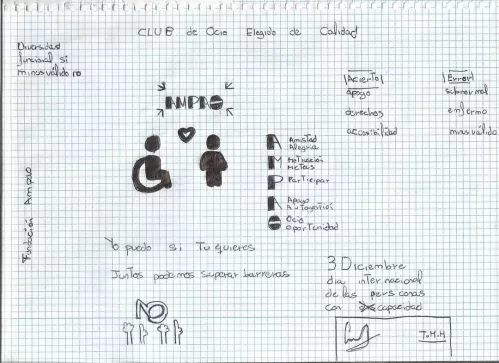 CLUB de Ocio Elegido de Calidad
Diversidad
funcional si
minusválido no
AMPAO
Acierto
apoyo
derechos
accesibilidad
Error
subnormal
enfermo
minusválido
A Amistad
Alegria
M Motivación
Metas
P Participar
A Apoyo
Autogestión
O Ocio
oportunidad
Fundación Ampao
Yo puedo si Tu quieres
Juntos podemos superar barreras
NO
3 Diciembre
dia internacional
de las personas
con capacidad
J.M.H